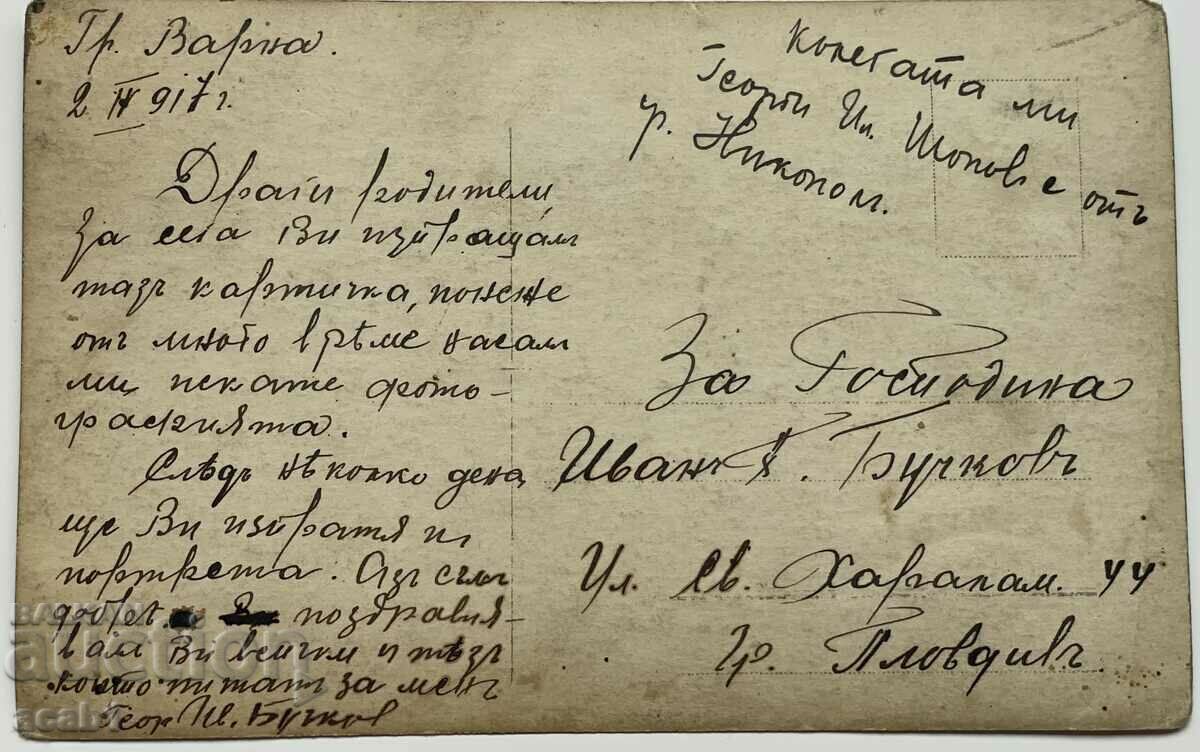 Гр. Варна.
2 IV 917 г.
Драги родители,
За сега Ви изпращамъ
тазъ картичка, понеже
отъ много врѣме насам
ми искате фото-
графията.
Слѣдъ нѣколко дена
ще Ви изпратя и
портрета. Азъ съмъ
добрѣ. поздравя-
вам Ви всички и тѣзъ
които питатъ за мен
Геор. Ив. Бучков
Колегата ми
Георги Ил. Шопов е отъ
гр. Никопол.
За Господина
Иванъ П. Бучковъ
Ул. Св. Харалам. 44
Гр. Пловдивъ
BALKAN
auction
acab